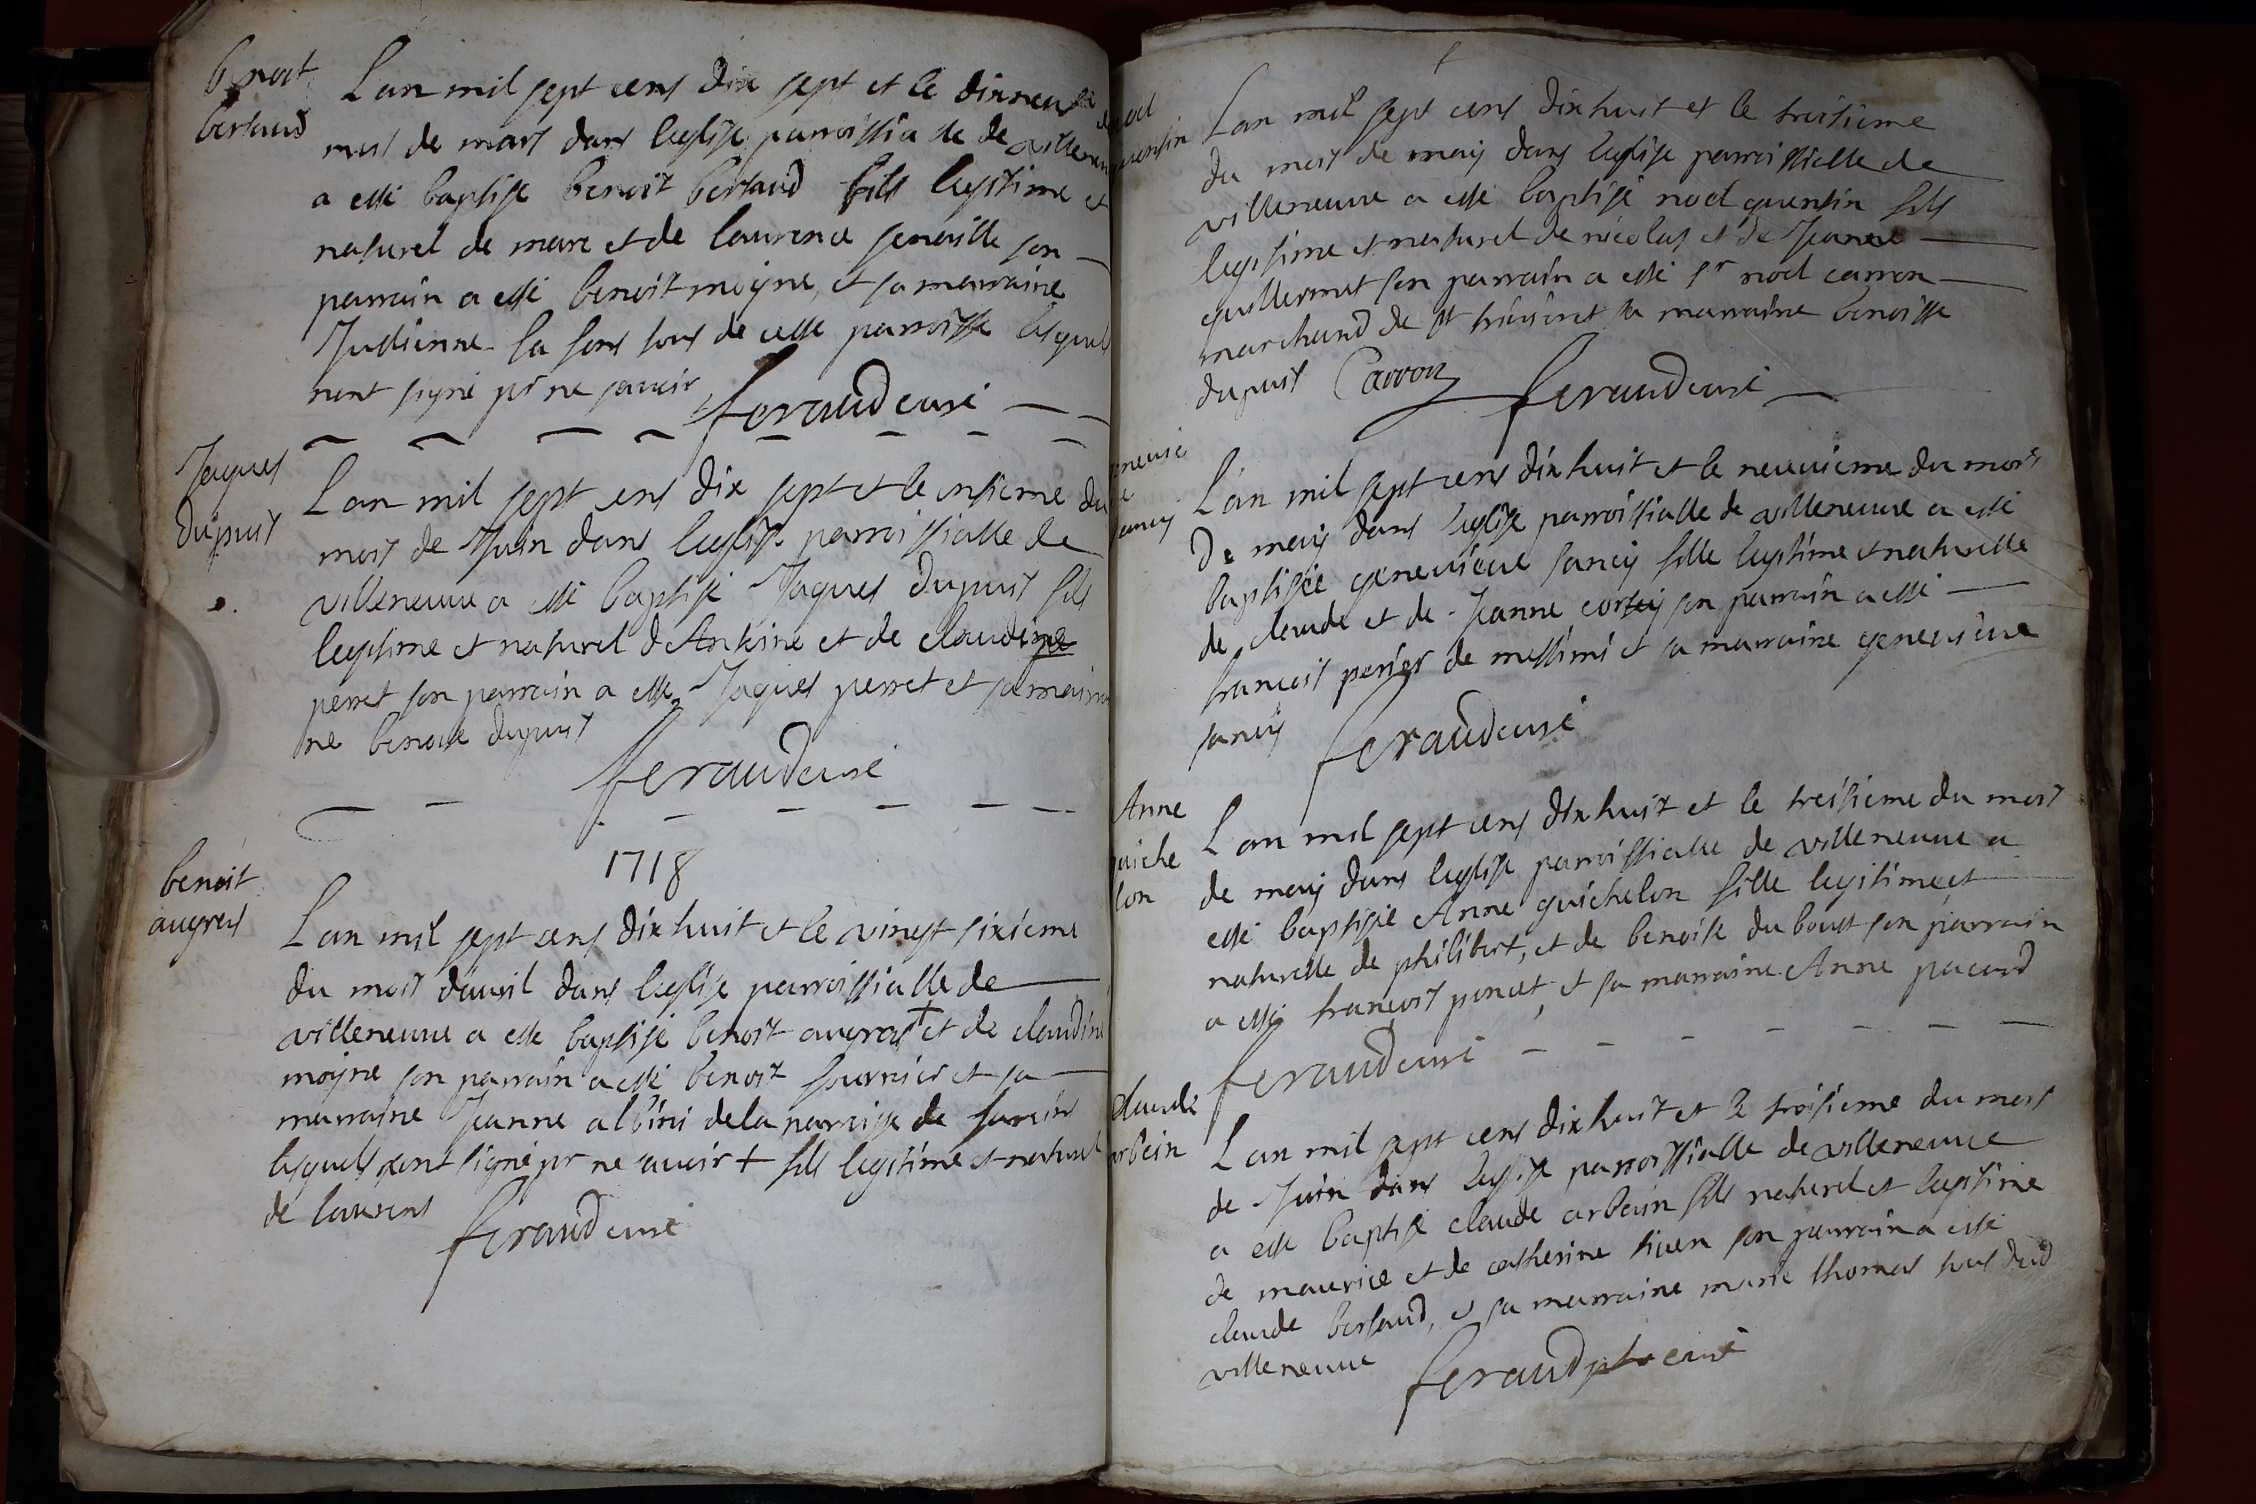 benoit
bertaud
Lan mil sept cens dix sept et le dixneu
mois de mars dans leglise parroissialle de villeneu
a esté baptisé benoit bertaud fils legitime et
naturel de marc et de laurence genoille son
parrain a esté benoit moyne, et sa marraine
Judienne la font tous de cette parroisse lesquels
nont signé pr ne scavoir
feraud curé
Jaques
dupuit
Lan mil sept cens dix sept et le onsieme du
mois de Juin dans leglise parroissialle de
villeneuve a esté baptisé Jaques dupuit fils
legitime et naturel dAntoine et de claudine
perret son parrain a esté Jaques perret et sa marrai
ne benoite dupuit
feraud curé
1718
benoit
augros
Lan mil sept cens dix huit et le vingt sixieme
du mois davril dans leglise parroissialle de
villeneuve a esté baptisé benoit augros + et de claudine
moyne son parrain a esté benoit fournier et sa
marraine Jeanne albini de la parroisse de farein
lesquels nont signé pr ne scavoir + fils legitime et naturel
de laurens
feraud curé
noel
quentin
Lan mil sept cens dix huit et le troisieme
du mois de may dans leglise parroissialle de
villeneuve a esté baptisé noel quentin fils
legitime et naturel de nicolas et de Jeanne
guillermet son parrain a esté sr noel carron
marchand de st trivier et sa marraine benoitte
dupuit Carron feraud curé
geneuie
ve
sancy
Lan mil sept cens dix huit et le neuvieme du mois
de may dans leglise parroissialle de villeneuve a esté
baptisée genevieve sancy fille legitime et naturelle
de claude et de Jeanne corsey son parrain a esté
francois perier de messimi et sa marraine genevieve
sancy
feraud curé
Anne
guiche
lon
Lan mil sept cens dix huit et le treisieme du mois
de may dans leglise parroissialle de villeneuve a
esté baptisée Anne guichelon fille legitime et
naturelle de philibert, et de benoite du boust son parrain
a esté francois poncet, et sa marraine Anne pacard
feraud curé
claude
arbain
Lan mil sept cens dix huit et le troisieme du mois
de Juin dans leglise parroissialle de villeneuve
a esté baptisé claude arbain fils naturel et legitime
de maurice et de catherine siven son parrain a esté
claude bertaud, et sa marraine marie thomas tous dud
villeneuve
feraud curé